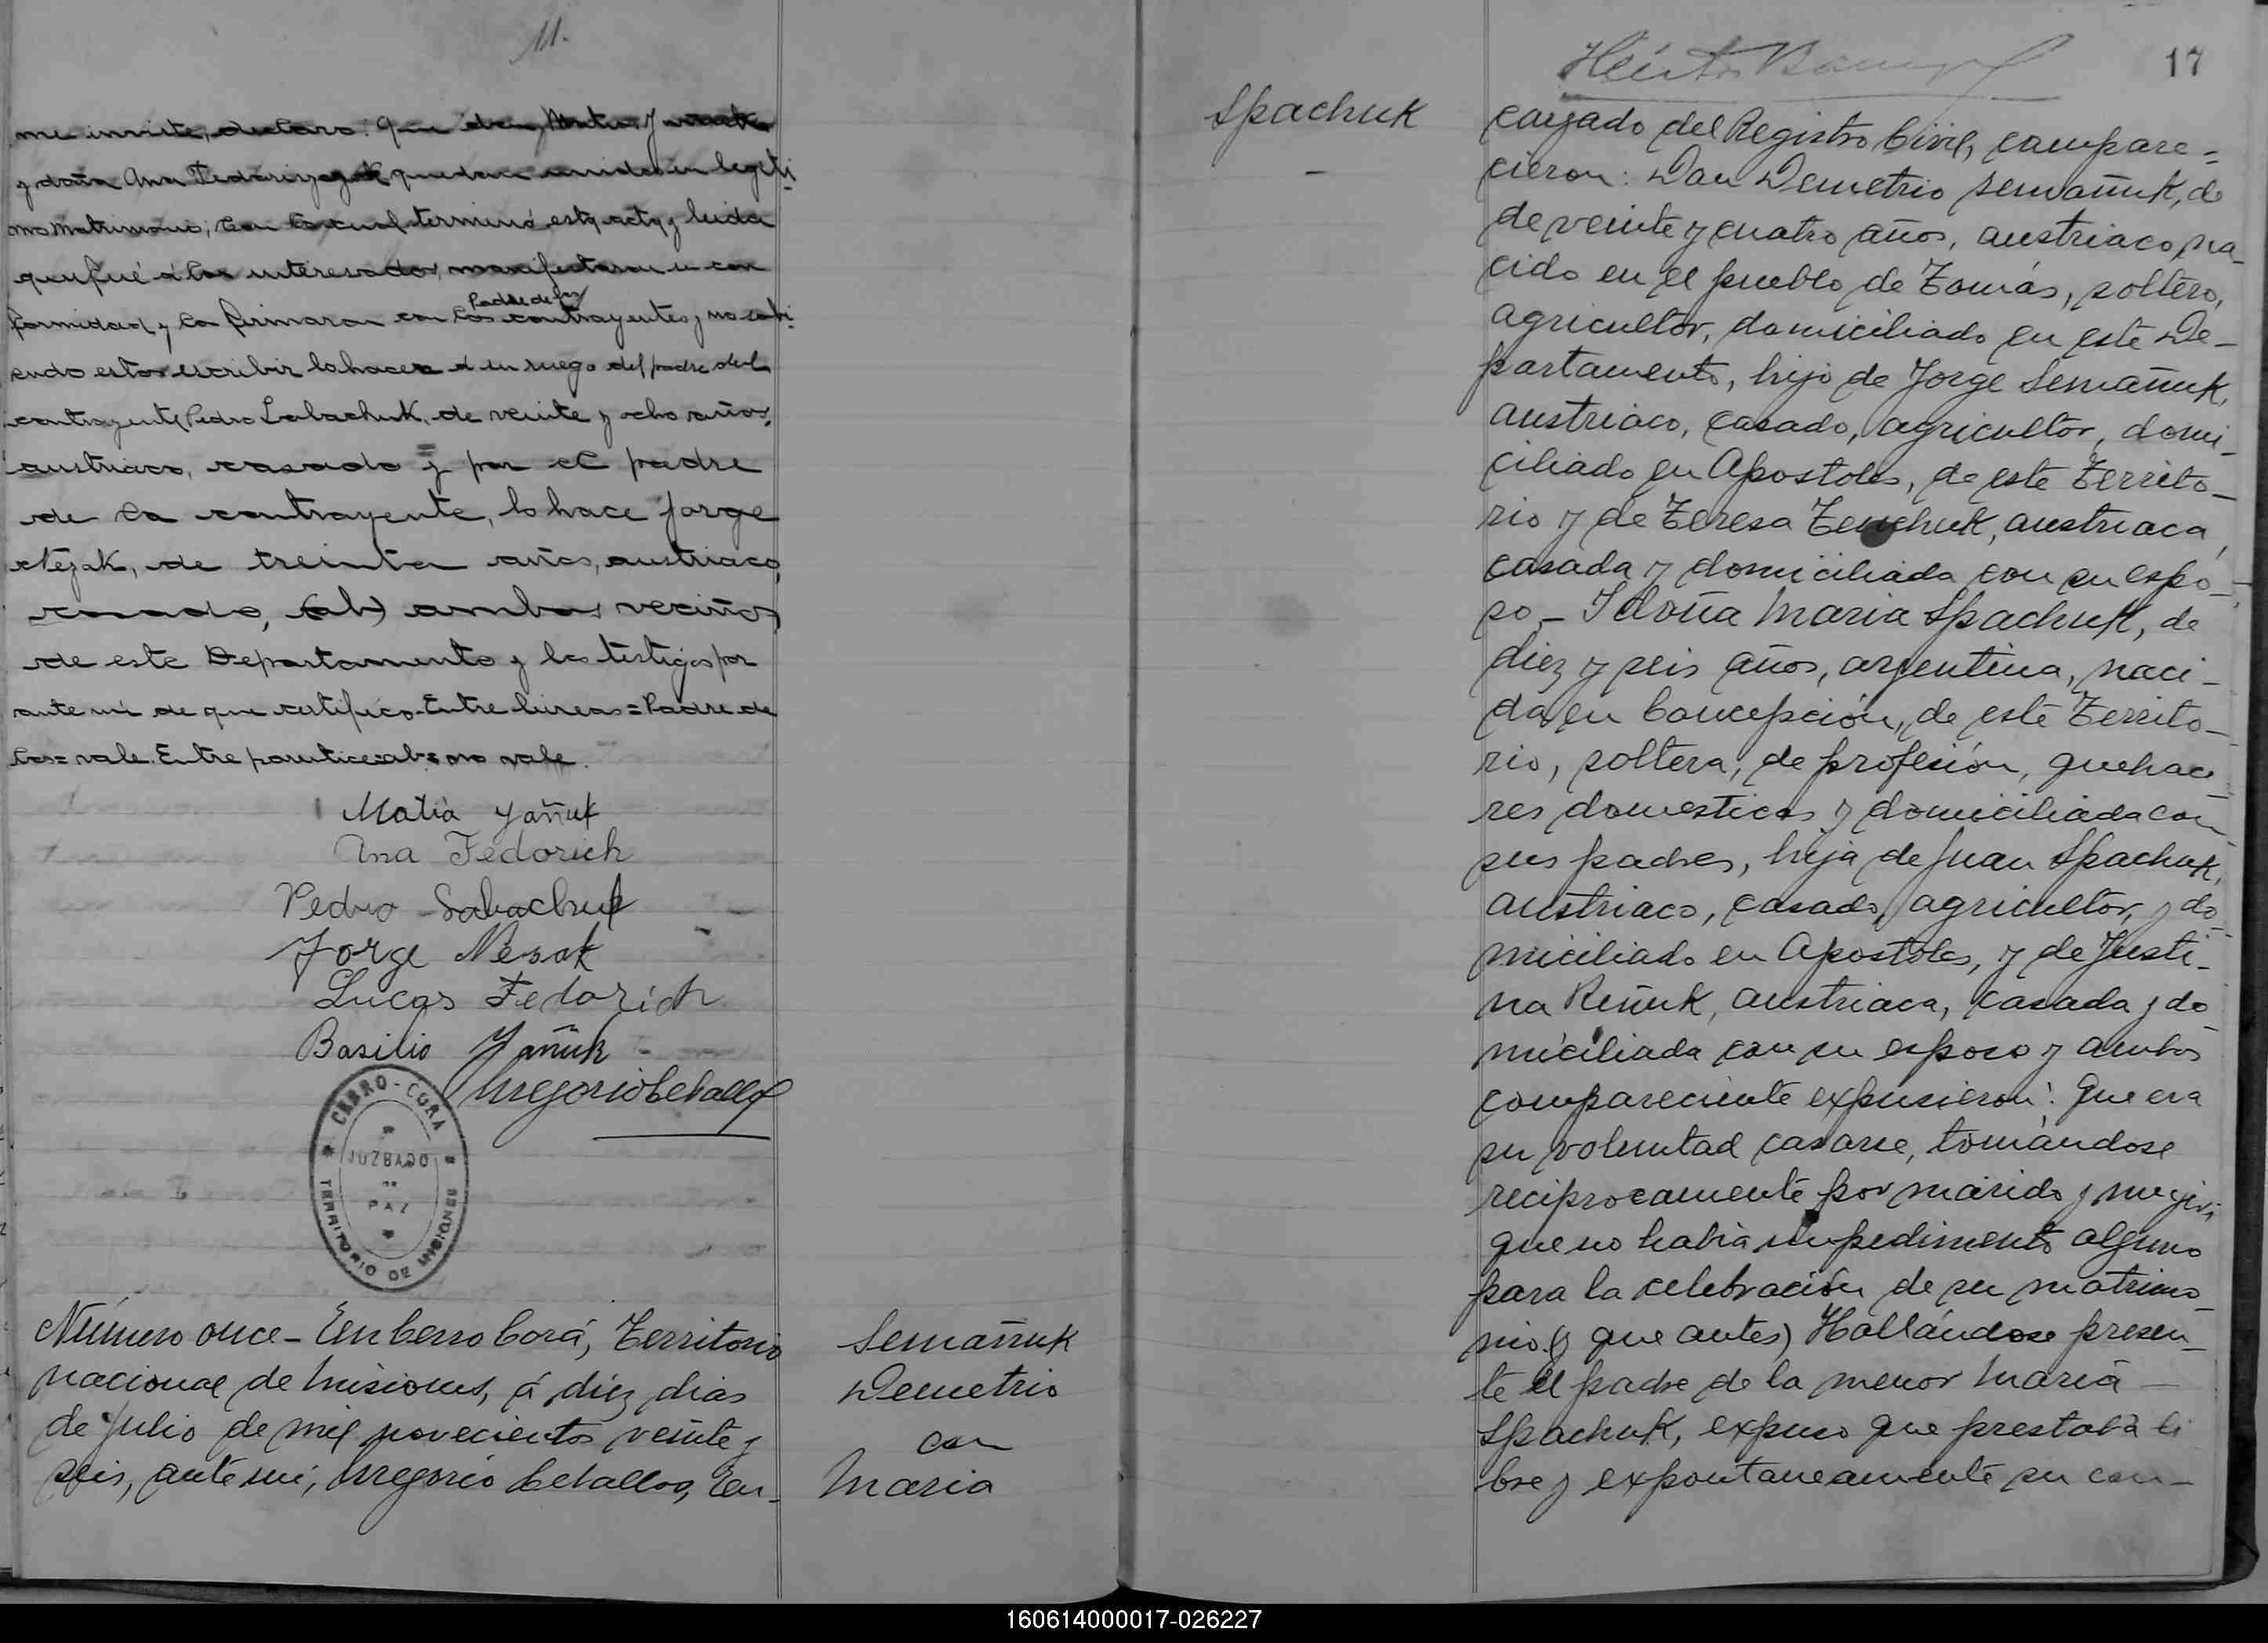 11.
me invite, declaro: Que don Matías Yañuk
y doña Ana quedan unidos en legíti-
mo matrimonio; con lo cual terminó esta acta y leida
que fué á los interesados, manifestaron su con
Padre de los
formidad y la firmaron con los contrayentes, y no sabi-
endo estos escribir lo hacen á su ruego del padre del
contrayente Pedro Sabachuk, de veinte y ocho años,
austriaco, casado y por el padre
de la contrayente, lo hace Jorge
Nejak, de treinta años, austriaco,
casado, (ab) ambos vecinos
de este Departamento y los testigos por
ante mi de que certifico. Entre lineas = Padre de
los = vale. Entre parentice: ab = no vale.
Matia Yañuk
Ana Fedorich
Pedro Sabachuk
Jorge Nesak
Lucas Fedorich
Basilio Yañuk
Gregorio Ceballos
CERRO-CORA
JUZGADO
DE
PAZ
TERRITORIO DE MISIONES
Número once - En Cerro Corá, Territorio
nacional de Misiones, á diez dias
de Julio de mil novecientos veinte y
seis, ante mi, Gregorio Ceballos, En-
Semañuk
Demetrio
con
Maria
Spachuk
-
17
cargado del Registro Civil, compare-
cieron: Don Demetrio Semañuk, de
de veinte y cuatro años, austriaco, na-
cido en el pueblo de Tomás, soltero,
agricultor, domiciliado en este De-
partamento, hijo de Jorge Semañuk,
austriaco, casado, agricultor, domi-
ciliado en Apostoles, de este Territo-
rio y de Teresa austriaca,
casada y domiciliada con su espo-
so - Y doña Maria Spachuk, de
diez y seis años, argentina, naci-
da en Concepción, de este Territo-
rio, soltera, de profesión, quehace-
res domesticos y domiciliada con
sus padres, hija de Juan Spachuk,
austriaco, casado, agricultor, y do-
miciliado en Apostoles, y de Justi-
na Reñuk, austriaca, casada y do-
miciliada con su esposo y ambos
compareciente expusieron: Que era
su voluntad casarse, tomándose
reciprocamente por marido y mujer;
que no habia impedimento alguno
para la celebración de su matrimo-
nio (y que antes) Hallándose presen-
te el padre de la menor Maria
Spachuk, expuso que prestaba li
bre y expontaneamente su con-
160614000017-026227